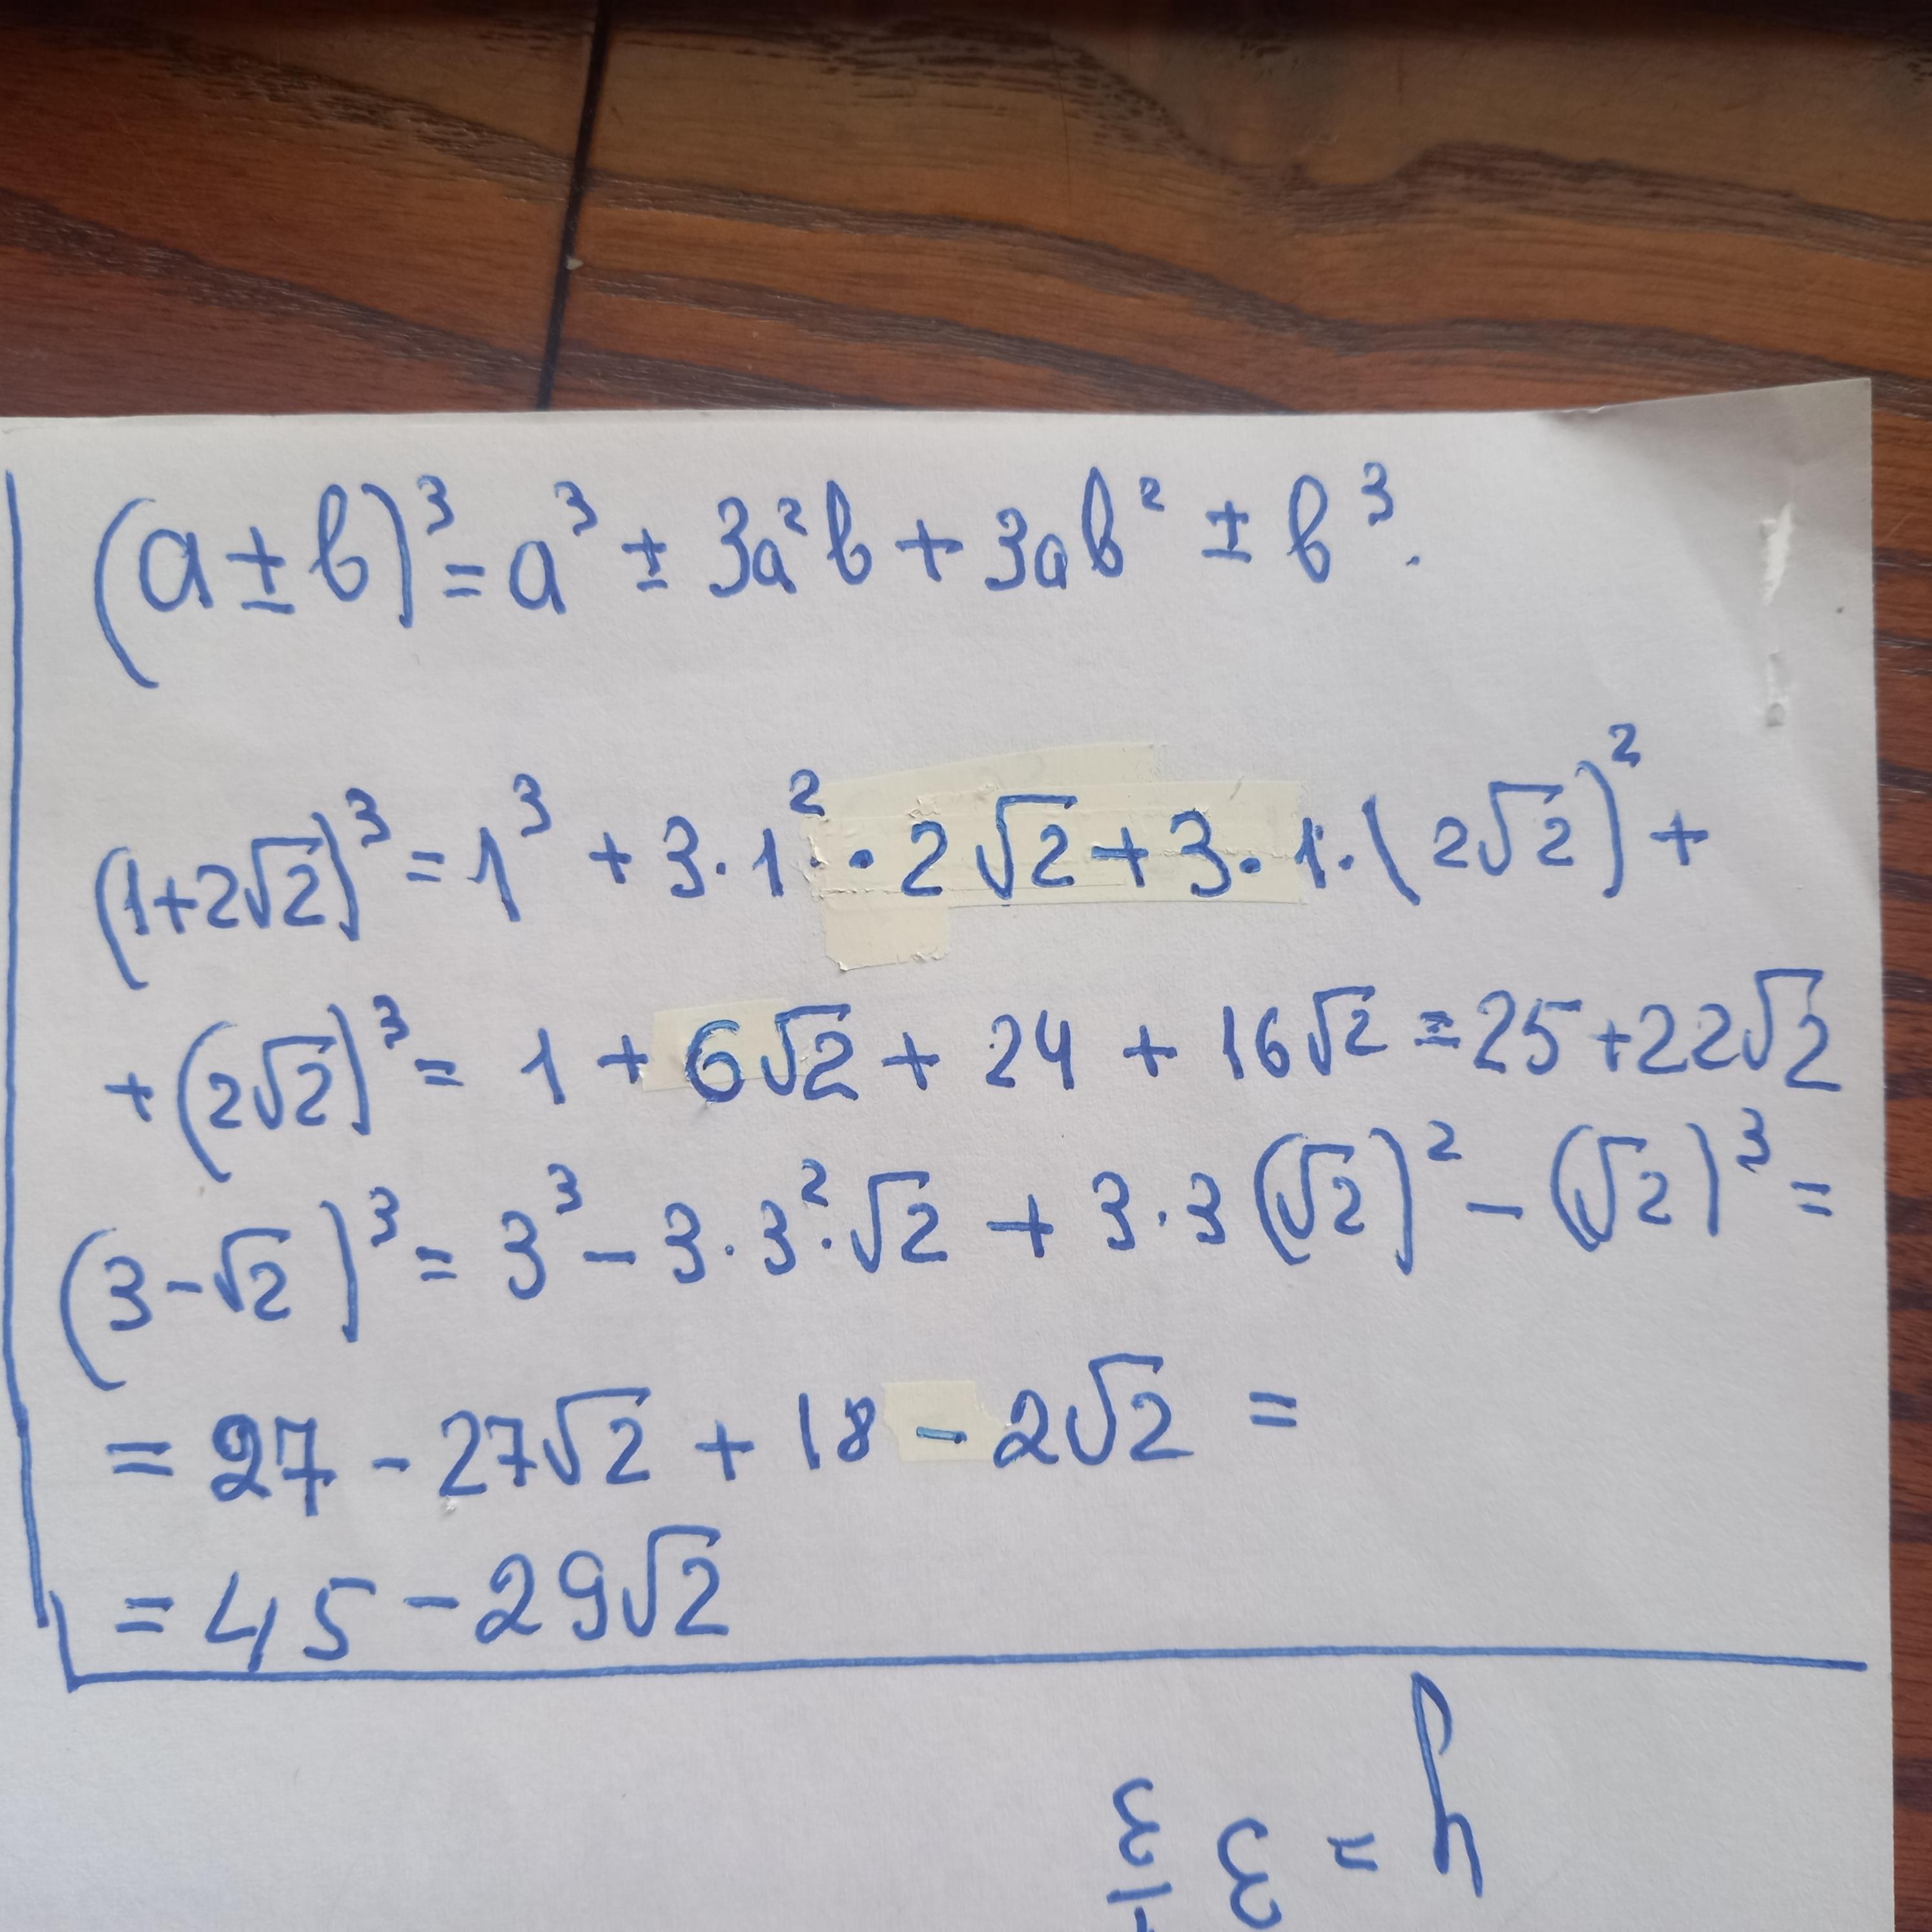 (a ± b)³ = a³ ± 3a²b + 3ab² ± b³.
(1+2√2)³ = 1³ + 3·1²··2√2+3·1·(2√2)² +
+ (2√2)³ = 1 + 6√2 + 24 + 16√2 = 25 + 22√2
(3-√2)³ = 3³ - 3·3²·√2 + 3·3(√2)² - (√2)³ =
= 27 - 27√2 + 18 - 2√2 =
= 45 - 29√2